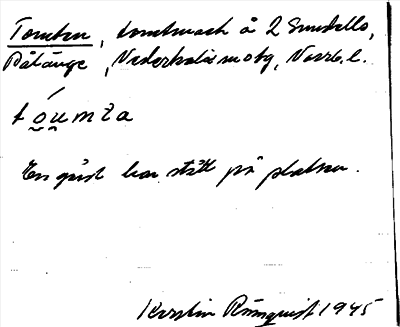 Tomten, tomtmark å 2 Smedsbo,
Båtänge, Nederkalix m otg, Norrb. l.
tóumta
En gård har stått på platsen.
Kerstin Rönnqvist 1945